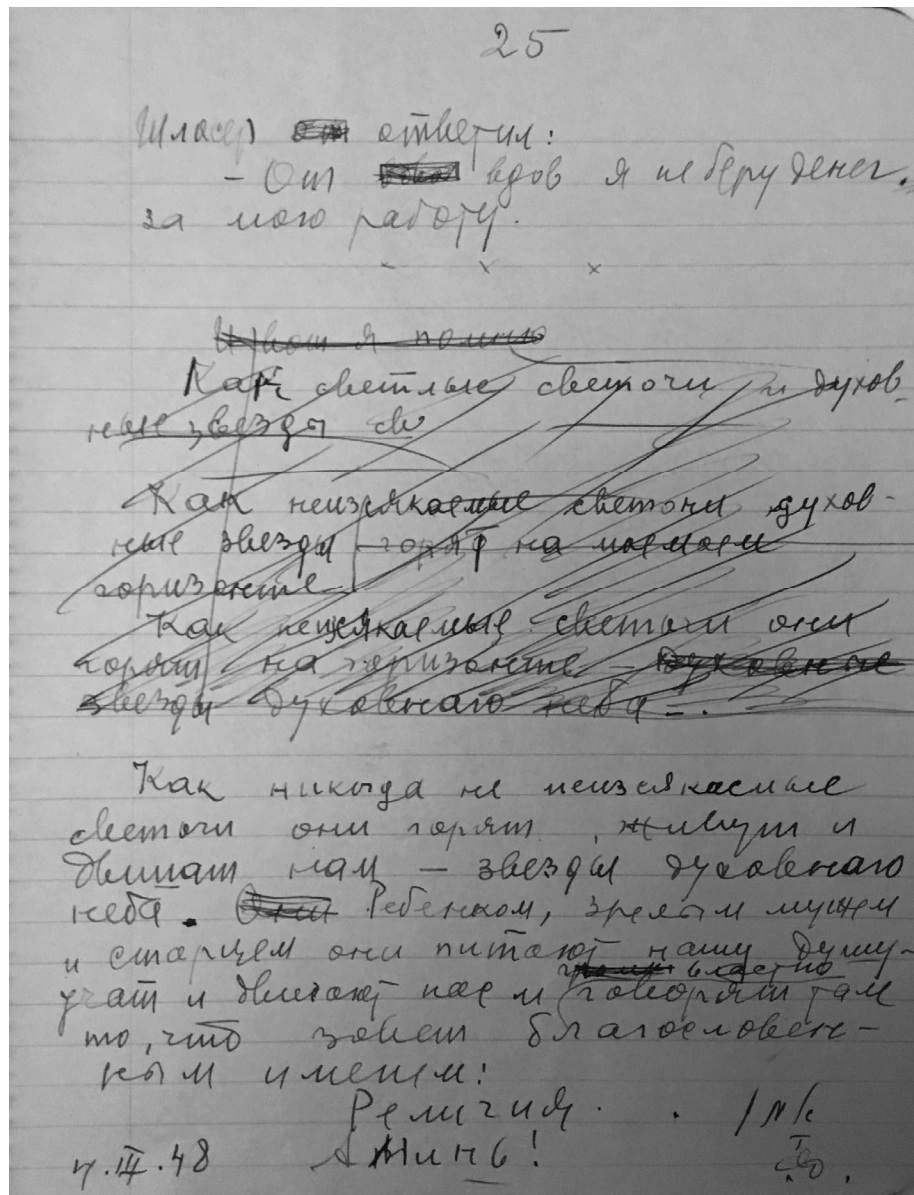 25
Шласер ответил:
- От вдов я не беру денег.
за мою работу.
x x
И вот я помню
Как светлые светочи и духов-
ные звезды св
Как неизсякаемые светочи духов-
ные звезды горят на моем
горизонте
Как неизсякаемые светочи они
горят на горизонте - духовные
звезды духовнаго неба -.
Как никогда не неизсякаемые
светочи они горят, живут и
нам — звезды духовнаго
неба. Они Ребенком, зрелым мужем
и старцем они питают нашу душу
властно
учат и двигают нас и говорят там
то, что зовем благословен-
ным именем:
Религия.
Аминь!
7.III.48